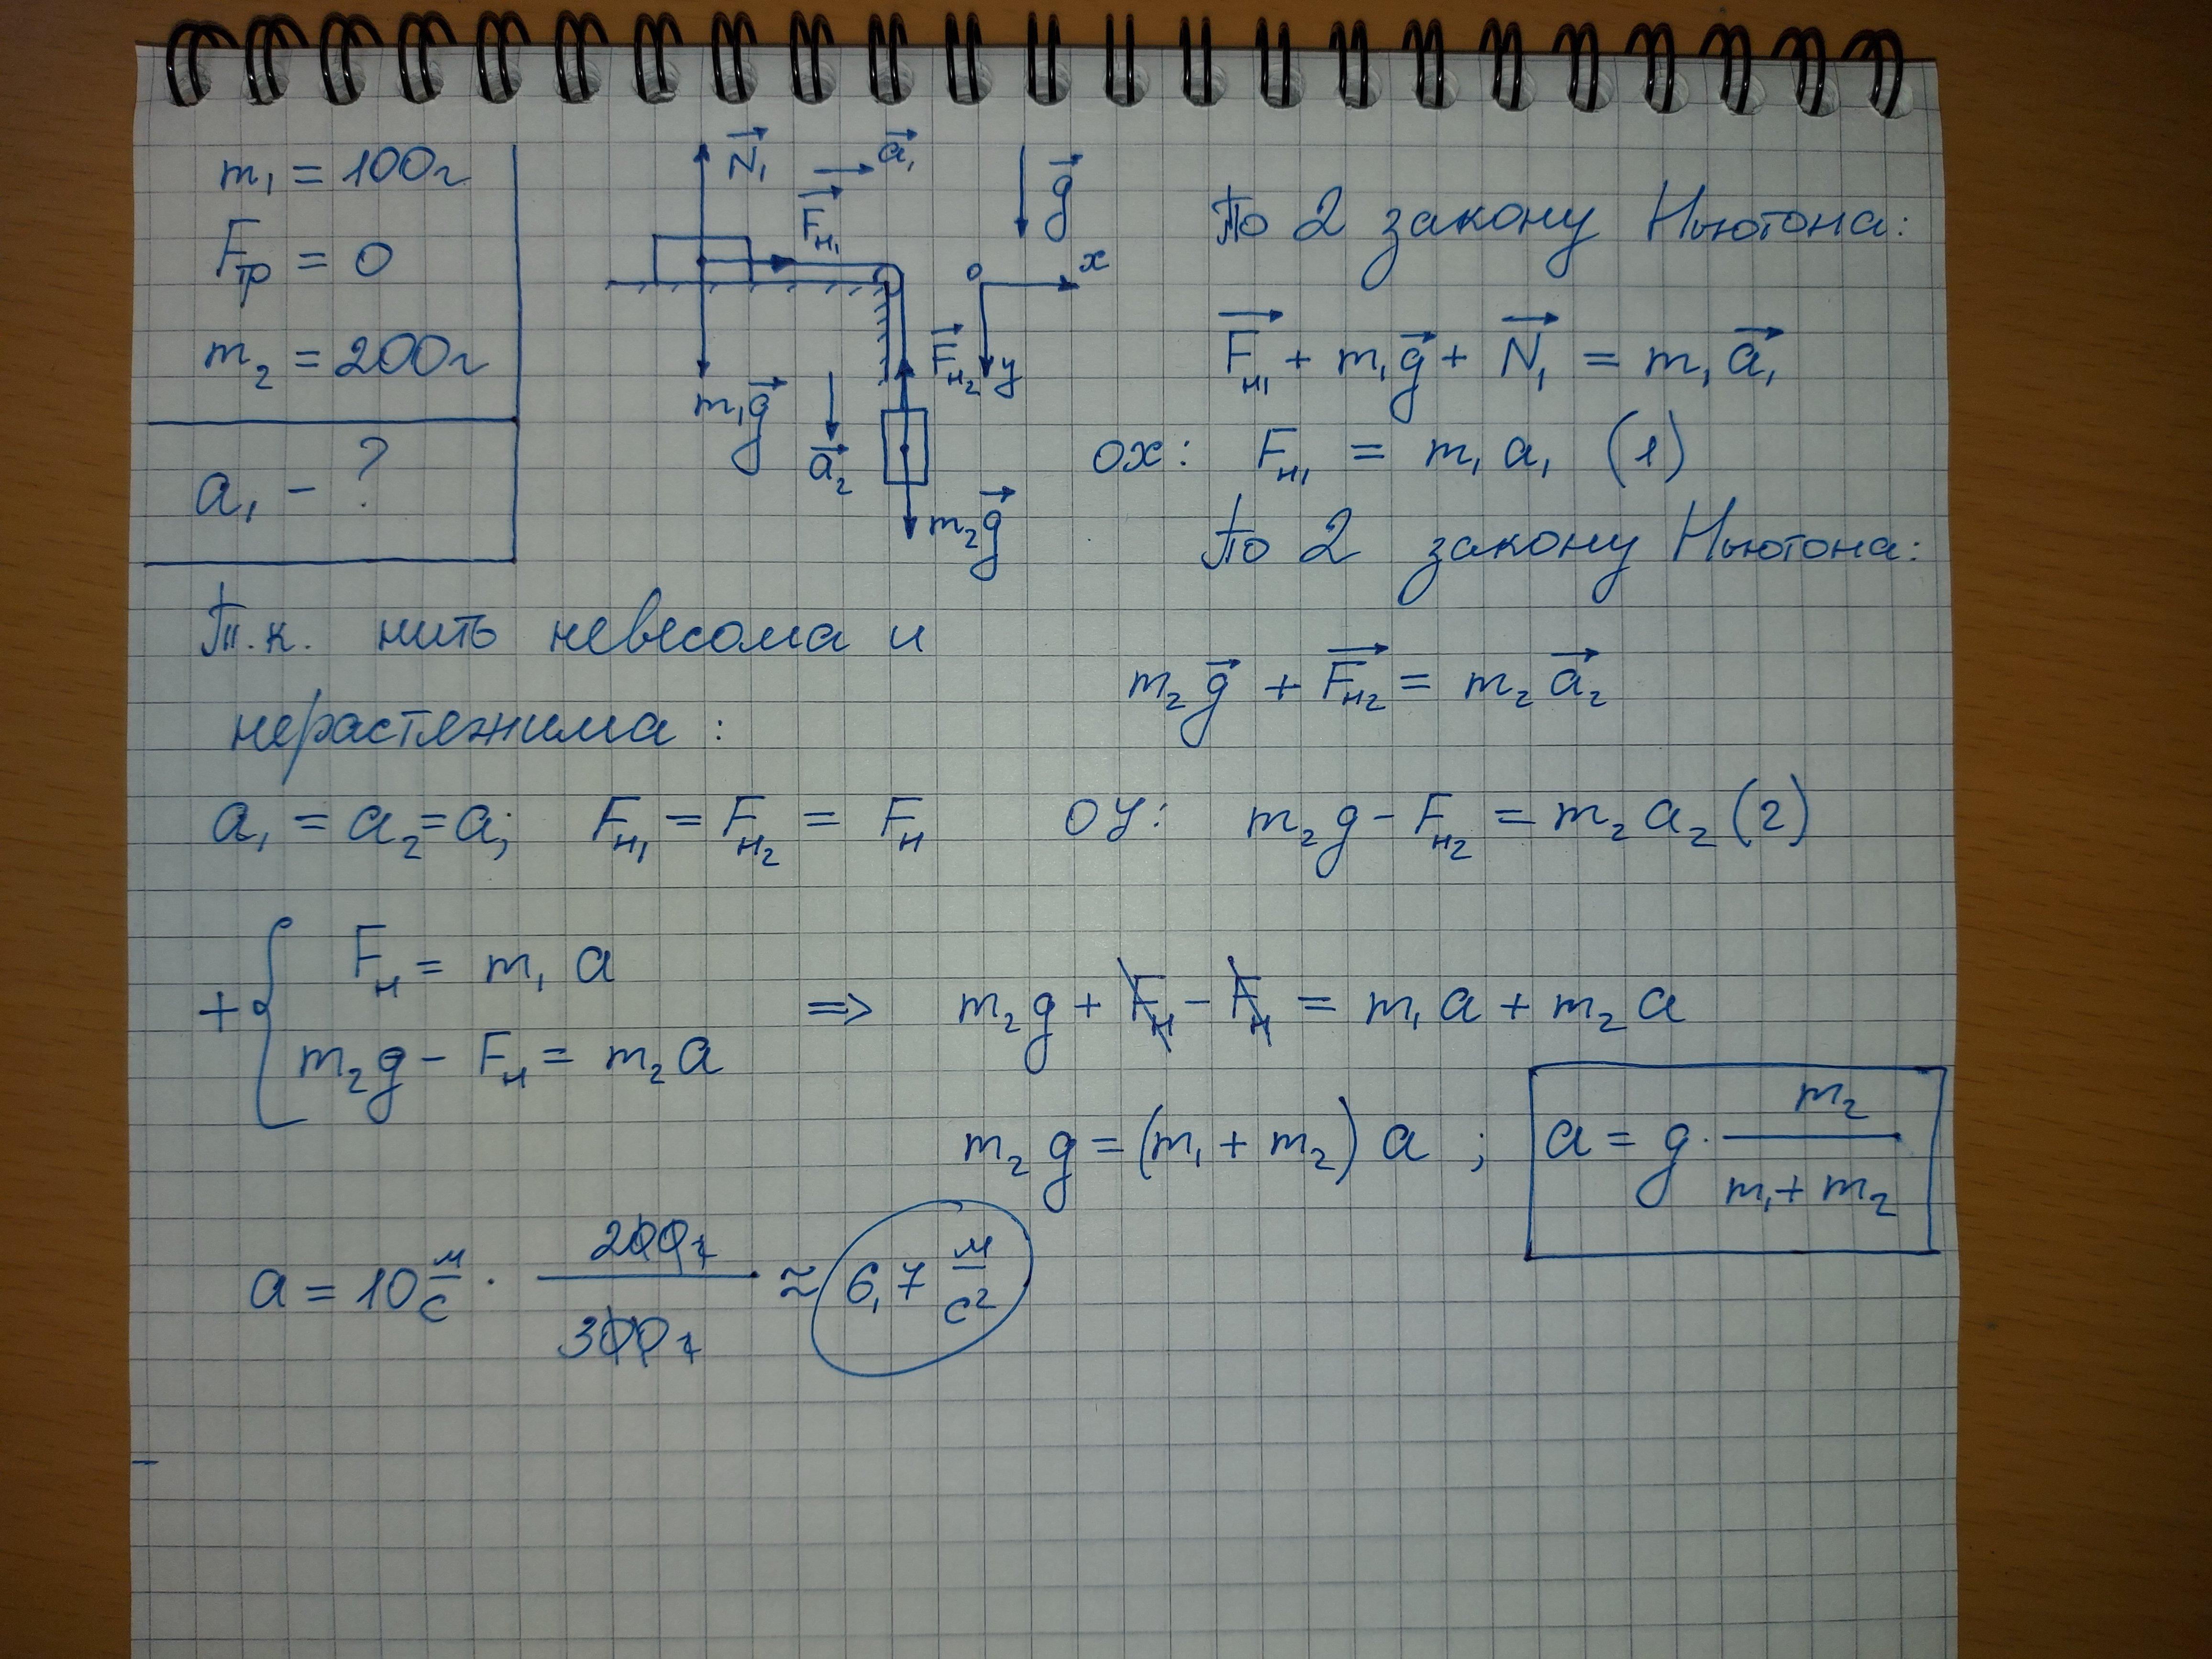 m₁ = 100г
Fтр = 0
m₂ = 200г
a₁ - ?
N₁
a₁
Fн₁
g
0 x
y
Fн₂
m₁g
a₂
m₂g
По 2 закону Ньютона:
Fн₁ + m₁g + N₁ = m₁a₁
ох: Fн₁ = m₁a₁ (1)
По 2 закону Ньютона:
m₂g + Fн₂ = m₂a₂
оу: m₂g - Fн₂ = m₂a₂ (2)
Т.к. нить невесома и
нерастяжима:
a₁ = a₂ = a; Fн₁ = Fн₂ = Fн
+{ Fн = m₁a
m₂g - Fн = m₂a
=> m₂g + Fн - Fн = m₁a + m₂a
m₂g = (m₁ + m₂) a ; a = g · m₂ / (m₁ + m₂)
a = 10 м/с · 200г / 300г ≈ 6,7 м/с²